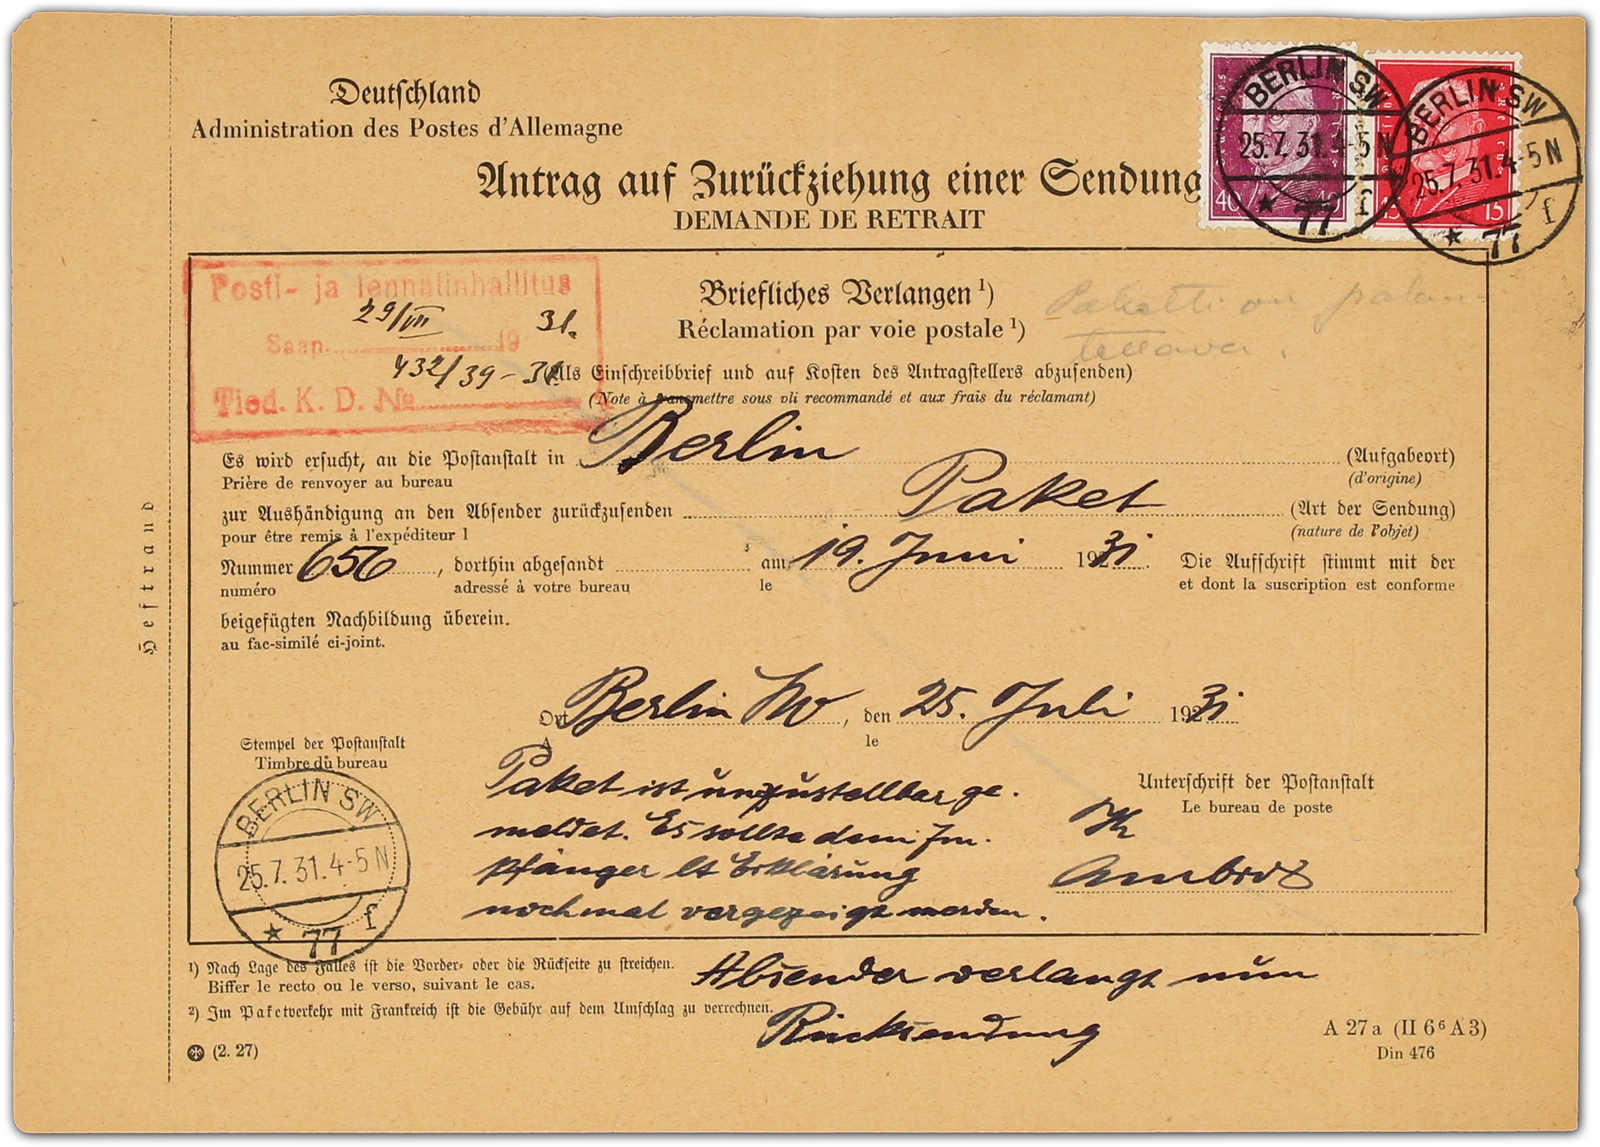 Deutschland
Administration des Postes d'Allemagne
BERLIN SW
25.7.31.4-5N
* 77 f
40 40
BERLIN SW
25.7.31.4-5N
* 77 f
15 15
Antrag auf Zurückziehung einer Sendung
DEMANDE DE RETRAIT
Posti- ja lennätinhallitus
29/VII 31.
Saap. 19
432/39-31
Tied. K. D. No
Briefliches Verlangen ¹)
Réclamation par voie postale ¹)
Paketti on palau-
tettava.
(Als Einschreibbrief und auf Kosten des Antragstellers abzusenden)
(Note à transmettre sous pli recommandé et aux frais du réclamant)
Es wird ersucht, an die Postanstalt in Berlin (Aufgabeort)
Prière de renvoyer au bureau (d'origine)
zur Aushändigung an den Absender zurückzusenden Paket (Art der Sendung)
pour être remis à l'expéditeur l (nature de l'objet)
Nummer 656, dorthin abgesandt am 19. Juni 1931. Die Aufschrift stimmt mit der
numéro adressé à votre bureau le et dont la suscription est conforme
beigefügten Nachbildung überein.
au fac-similé ci-joint.
Heftrand
Ort Berlin SW, den 25. Juli 192 31
A le
Stempel der Postanstalt
Timbre du bureau
BERLIN SW
25.7.31.4-5N
* 77 f
Paket ist unzustellbar ge-
meldet. Es sollte dem Em-
pfänger lt Erklärung
nochmal vorgezeigt werden.
Unterschrift der Postanstalt
Le bureau de poste
Absender verlangt nun
Rücksendung
¹) Nach Lage des Falles ist die Vorder- oder die Rückseite zu streichen.
Biffer le recto ou le verso, suivant le cas.
²) Im Paketverkehr mit Frankreich ist die Gebühr auf dem Umschlag zu verrechnen.
(2. 27)
A 27 a (II 6⁶ A 3)
Din 476